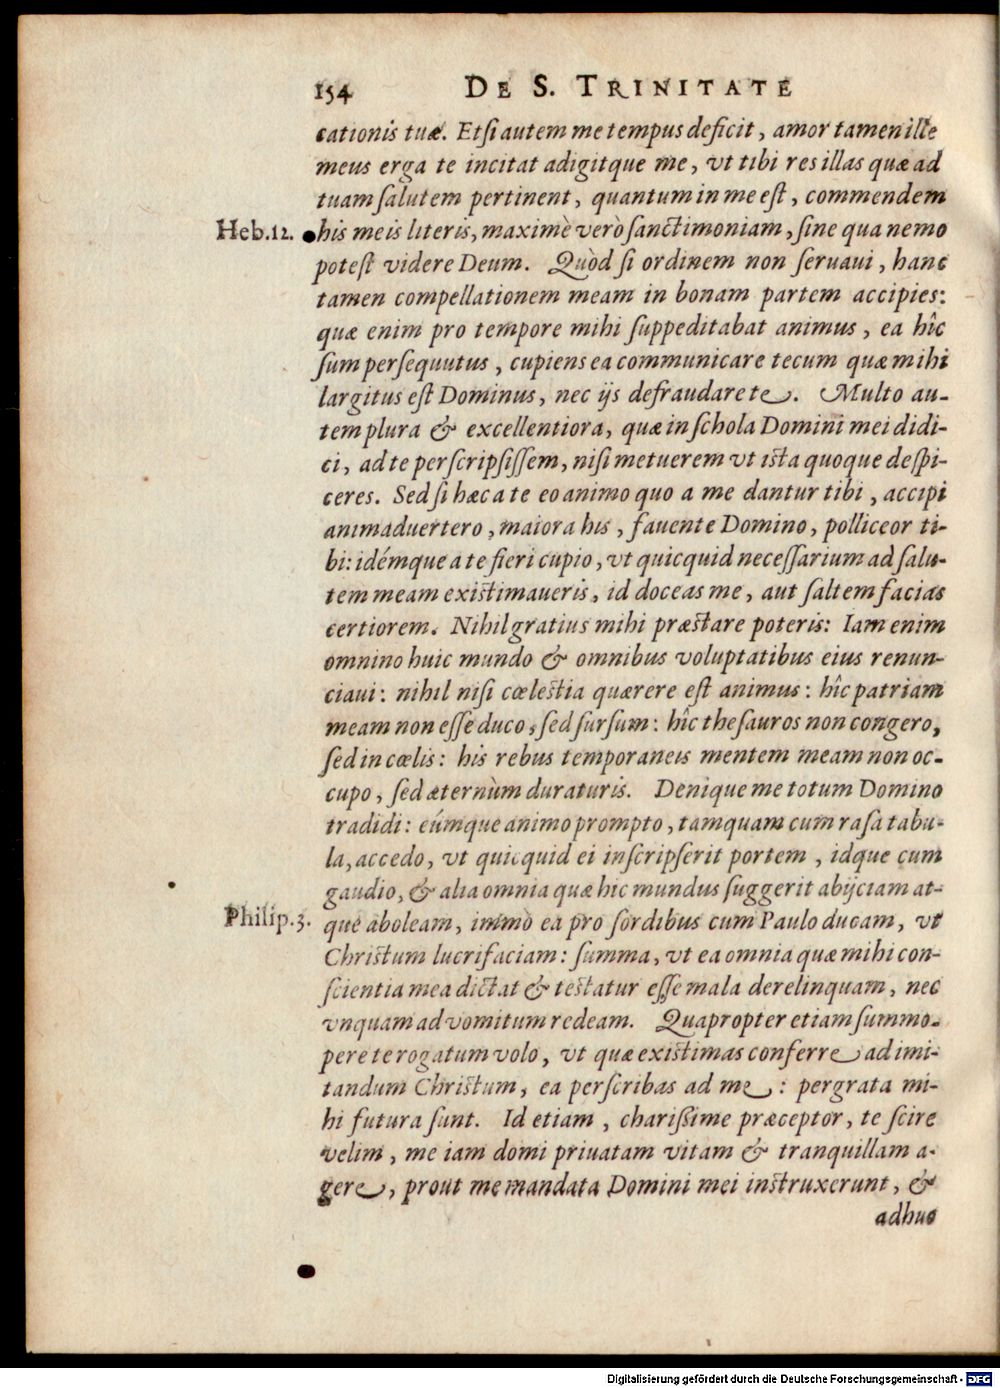 154 DE S. TRINITATE
cationis tuæ. Etsi autem me tempus deficit, amor tamen ille
meus erga te incitat adigitque me, vt tibi res illas quæ ad
tuam salutem pertinent, quantum in me est, commendem
Heb.12. his meis literis, maximè verò sanctimoniam, sine qua nemo
potest videre Deum. Quòd si ordinem non seruaui, hanc
tamen compellationem meam in bonam partem accipies:
quæ enim pro tempore mihi suppeditabat animus, ea hîc
sum persequutus, cupiens ea communicare tecum quæ mihi
largitus est Dominus, nec ijs defraudare te. Multo au-
tem plura & excellentiora, quæ in schola Domini mei didi-
ci, ad te perscripsissem, nisi metuerem vt ista quoque despi-
ceres. Sed si hæc a te eo animo quo a me dantur tibi, accipi
animaduertero, maiora his, fauente Domino, polliceor ti-
bi: idémque a te fieri cupio, vt quicquid necessarium ad salu-
tem meam existimaueris, id doceas me, aut saltem facias
certiorem. Nihil gratius mihi præstare poteris: Iam enim
omnino huic mundo & omnibus voluptatibus eius renun-
ciaui: nihil nisi cœlestia quærere est animus: hîc patriam
meam non esse duco, sed sursum: hîc thesauros non congero,
sed in cœlis: his rebus temporaneis mentem meam non oc-
cupo, sed æternùm duraturis. Denique me totum Domino
tradidi: eúmque animo prompto, tamquam cum rasa tabu-
la, accedo, vt quicquid ei inscripserit portem, idque cum
gaudio, & alia omnia quæ hic mundus suggerit abijciam at-
Philip.3. que aboleam, immò ea pro sordibus cum Paulo ducam, vt
Christum lucrifaciam: summa, vt ea omnia quæ mihi con-
scientia mea dictat & testatur esse mala derelinquam, nec
vnquam ad vomitum redeam. Quapropter etiam summo-
pere te rogatum volo, vt quæ existimas conferre ad imi-
tandum Christum, ea perscribas ad me: pergrata mi-
hi futura sunt. Id etiam, charissime præceptor, te scire
velim, me iam domi priuatam vitam & tranquillam a-
gere, prout me mandata Domini mei instruxerunt, &
adhuc
Digitalisierung gefördert durch die Deutsche Forschungsgemeinschaft - DFG